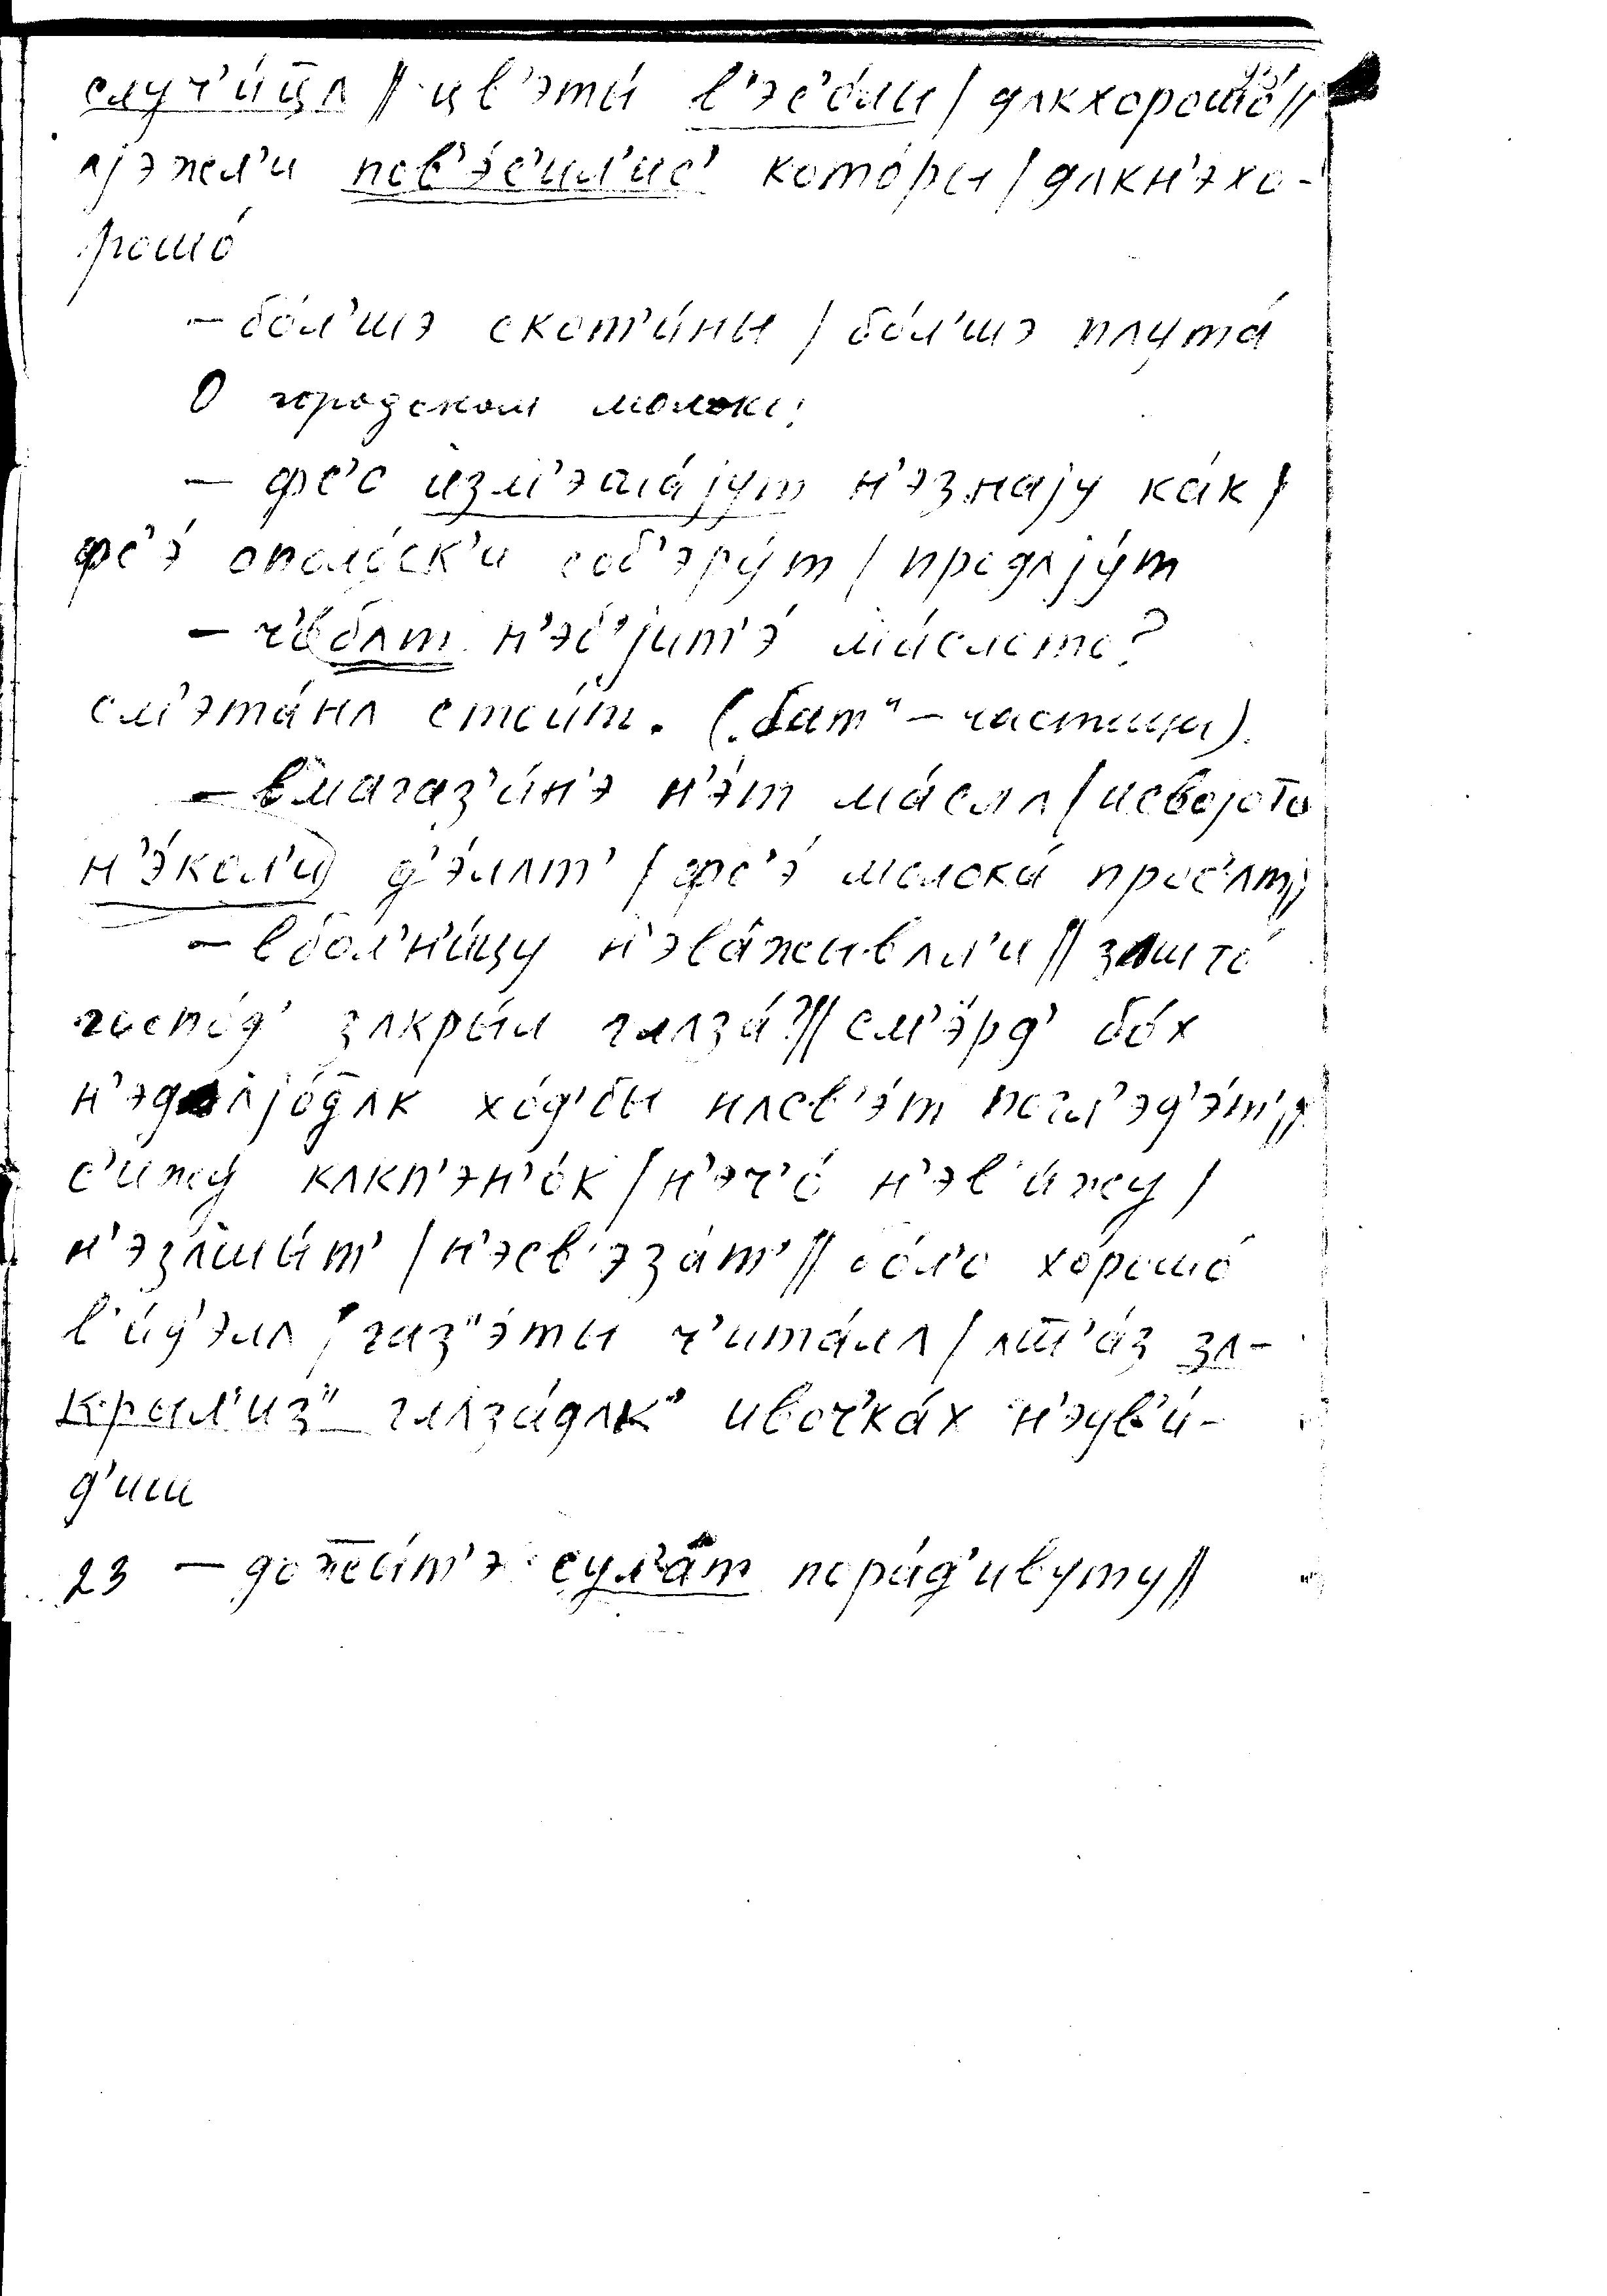 случ'и́ц̄ʌ // цв'эты́ в'эс'о́лы / дʌкхорошо́ //
ʌjэжл'и пов'э́с'ил'ис' кото́ры / дʌкн'эхо-
рошо́
— бо́л'шэ скот'и́ны / бо́л'шэ плута́
О городском молоке:
— фс'о изм'эша́jут н'эзнаjу ка́к /
фс'э́ опало́ск'и соб'эру́т / продʌjу́т
— ч'о́бʌт н'эб'jит'э́ ма́слото?
см'эта́нʌ стои́т. („бат" — частица).
— вмагаз'и́н'э н'э́т ма́слʌ / исвоjото
н'э́кол'и д'э́лʌт' / фс'э́ молока́ про́с'ʌт //
— вбол'н'и́цу н'эва́жывʌл'и // зʌшто́
госпо́д' зʌкры́л глʌза́? // см'э́рд' бо́х
н'эдʌjо́д̄ʌк хо́д'бы нʌсв'э́т погл'эд'э́т' //
с'ижу́ кʌкп'эн'о́к / н'эч'о́ н'эв'и́жу /
н'эзʌшы́т' / н'эсв'эза́т' // бо́л'о хорошо́
в'и́д'элʌ / газ"э́ты ч'ита́лʌ / ʌт'а́з зʌ-
крыл'из" глʌза́дʌк" ивоч'ка́х н'эув'и́-
д'иш
23 — дожы́т'э сул'а́т пора́д'ивуту //